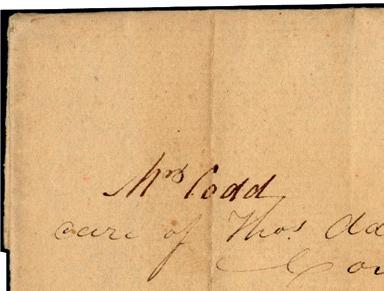 Mrs Codd
care of Thos.